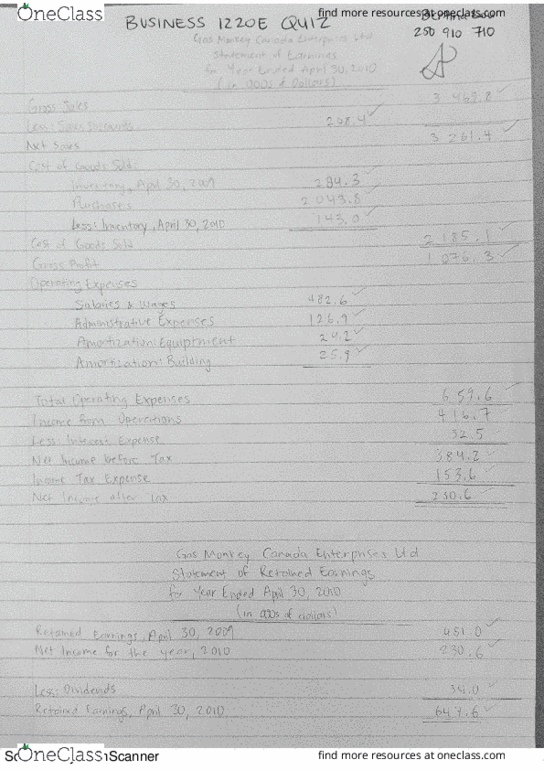 OneClass
find more resources at oneclass.com
BUSINESS 1220E QUIZ
250 910 710
Gas Monkey Canada Enterprises Ltd
Statement of Earnings
for Year Ended April 30, 2010
(in 000s of Dollars)
Gross Sales 3 469.8
Less: Sales Discounts 208.4
Net Sales 3 261.4
Cost of Goods Sold:
Inventory, April 30, 2009 284.3
Purchases 2 043.8
Less: Inventory, April 30, 2010 143.0
Cost of Goods Sold 2 185.1
Gross Profit 1 076.3
Operating Expenses
Salaries & Wages 482.6
Administrative Expenses 126.9
Amortization: Equiptment 24.2
Amortization: Building 25.9
Total Operating Expenses 659.6
Income from Operations 416.7
Less: Interest Expense 32.5
Net Income before Tax 384.2
Income Tax Expense 153.6
Net Income after Tax 230.6
Gas Monkey Canada Enterprises Ltd
Statement of Retained Earnings
for Year Ended April 30, 2010
(in 000s of dollars)
Retained Earnings, April 30, 2009 451.0
Net Income for the year, 2010 230.6
Less: Dividends 34.0
Retained Earnings, April 30, 2010 647.6
OneClass
Scanner
find more resources at oneclass.com